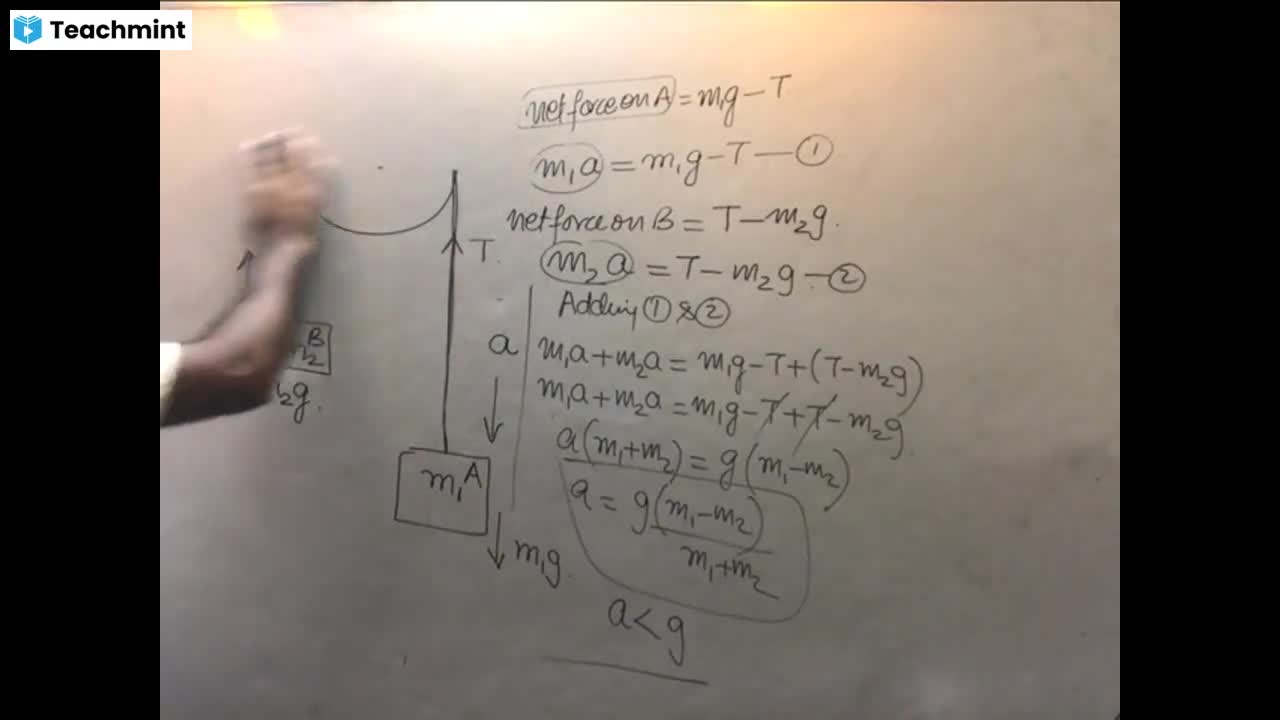 Teachmint
net force on A = m₁g – T
m₁a = m₁g – T — ①
net force on B = T – m₂g.
m₂a = T – m₂g – ②
Adding ① & ②
m₁a + m₂a = m₁g – T + (T – m₂g)
m₁a + m₂a = m₁g – T + T – m₂g
a(m₁+m₂) = g(m₁–m₂)
a = g(m₁–m₂)
m₁+m₂
a < g
T
a
B
2
₂g.
m₁ A
m₁g